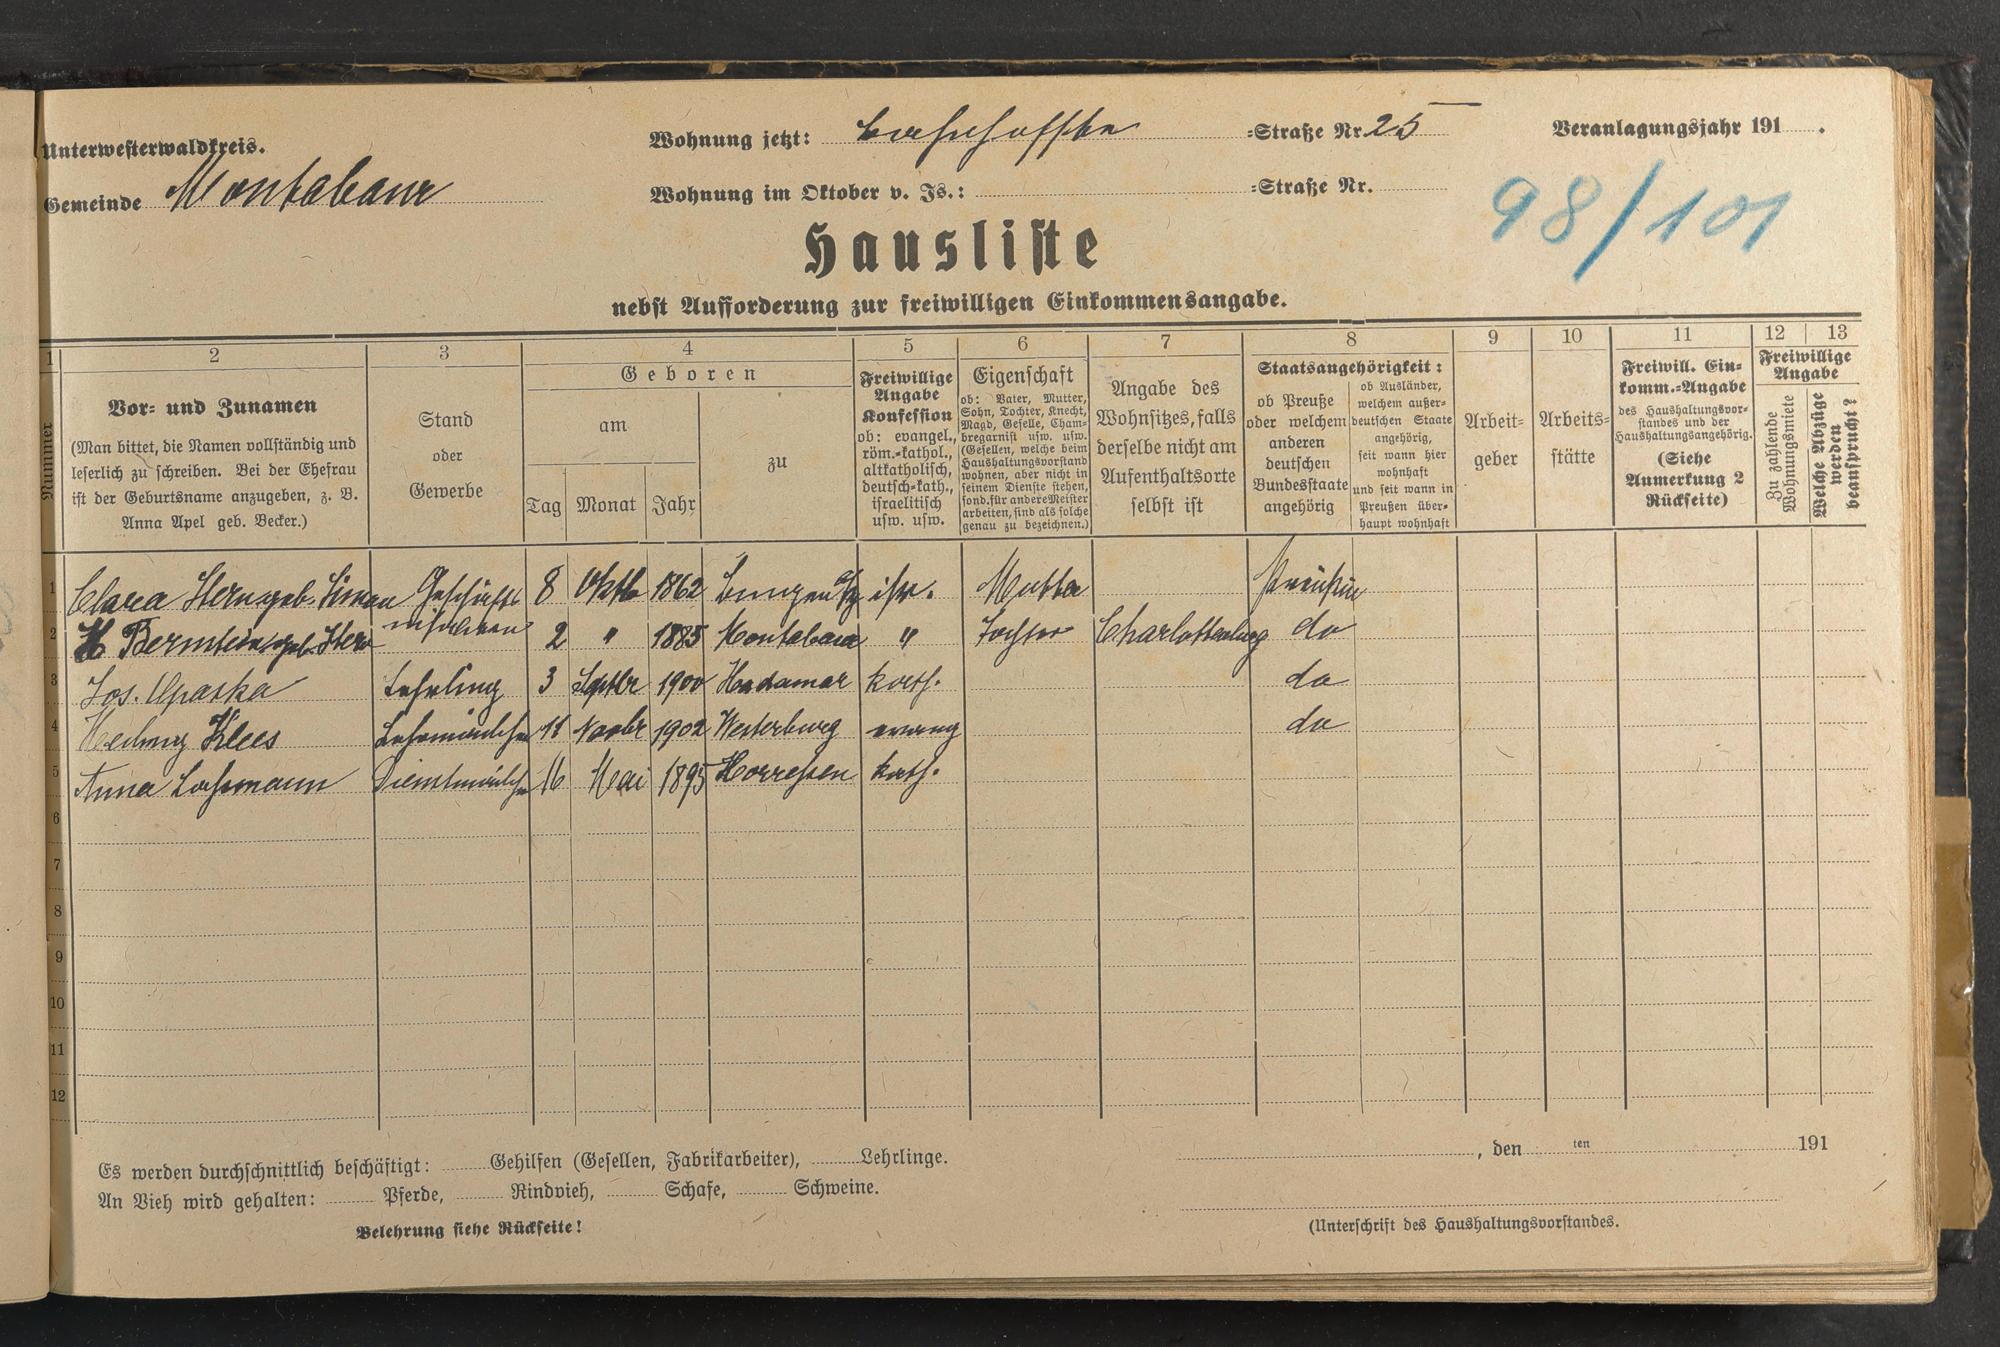 Unterwesterwaldkreis.
Gemeinde Montabaur
Wohnung jetzt: Bahnhofstr =Straße Nr. 25
Wohnung im Oktober v. Js.: =Straße Nr.
Veranlagungsjahr 191 .
98/101
Hausliste
nebst Aufforderung zur freiwilligen Einkommensangabe.
1 2 3 4 5 6 7 8 9 10 11 12 13
Nummer
Vor= und Zunamen
(Man bittet, die Namen vollständig und
leserlich zu schreiben. Bei der Ehefrau
ist der Geburtsname anzugeben, z. B.
Anna Apel geb. Becker.)
Stand
oder
Gewerbe
Geboren
am
Tag Monat Jahr
zu
Freiwillige
Angabe
Konfession
ob: evangel.,
röm.=kathol.,
altkatholisch,
deutsch=kath.,
israelitisch
usw. usw.
Eigenschaft
ob: Vater, Mutter,
Sohn, Tochter, Knecht,
Magd, Geselle, Cham=
bregarnist usw. usw.
(Gesellen, welche beim
Haushaltungsvorstand
wohnen, aber nicht in
seinem Dienste stehen,
sond. für andere Meister
arbeiten, sind als solche
genau zu bezeichnen.)
Angabe des
Wohnsitzes, falls
derselbe nicht am
Aufenthaltsorte
selbst ist
Staatsangehörigkeit:
ob Preuße
oder welchem
anderen
deutschen
Bundesstaate
angehörig
ob Ausländer,
welchem außer=
deutschen Staate
angehörig,
seit wann hier
wohnhaft
und seit wann in
Preußen über=
haupt wohnhaft
Arbeit=
geber
Arbeits=
stätte
Freiwill. Ein=
komm.=Angabe
des Haushaltungsvor=
standes und der
Haushaltungsangehörig.
(Siehe
Anmerkung 2
Rückseite)
Freiwillige
Angabe
Zu zahlende
Wohnungsmiete
Welche Abzüge
werden
beansprucht?
1 Clara Stern geb. Simon Geschäfts 8 Oktb 1862 isr. Mutter
inhaberin
2 H Bernstein geb. Stern 2 " 1885 Montabaur " Tochter Charlottenburg do
3 Jos. Lehrling 3 Septbr 1900 Hadamar kath. do
4 Hedwig Klees Lehrmädchen 11 Novbr 1902 Westerburg evang do
5 Anna Lohmann Dienstmädch 16 Mai 1895 Horressen kath.
6
7
8
9
10
11
12
Es werden durchschnittlich beschäftigt: Gehilfen (Gesellen, Fabrikarbeiter), Lehrlinge.
An Vieh wird gehalten: Pferde, Rindvieh, Schafe, Schweine.
Belehrung siehe Rückseite!
, den ten 191
(Unterschrift des Haushaltungsvorstandes.